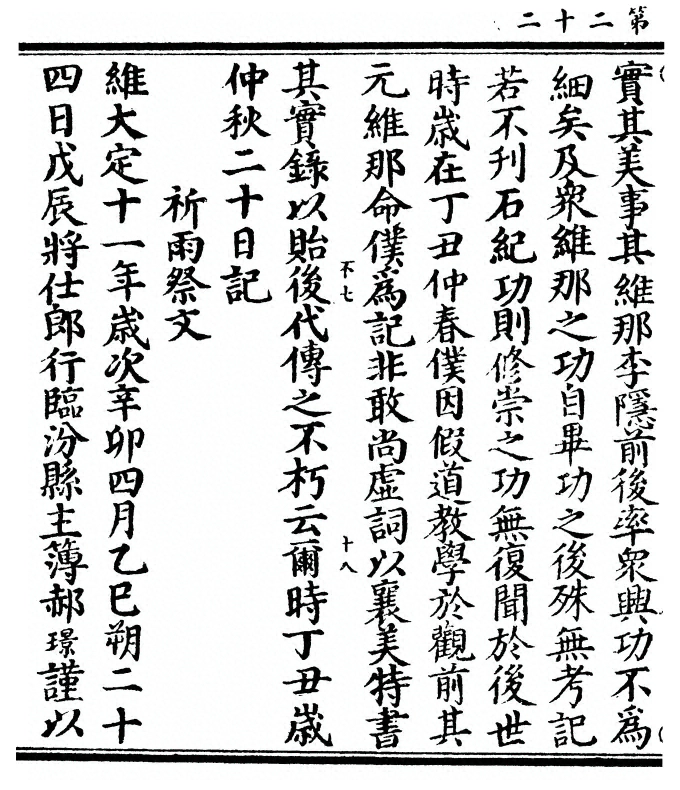 第二十二
實其美事其維那李隱前後率衆興功不爲
細矣及衆維那之功自畢功之後殊無考記
若不刋石紀功則修崇之功無復聞於後世
時歲在丁丑仲春僕因假道教學於觀前其
元維那命僕爲記非敢尚虛詞以襄美特書
不七
十八
其實錄以貽後代傳之不朽云爾時丁丑歲
仲秋二十日記
祈雨祭文
維大定十一年歲次辛卯四月乙巳朔二十
四日戊辰將仕郎行臨汾縣主簿郝璟謹以